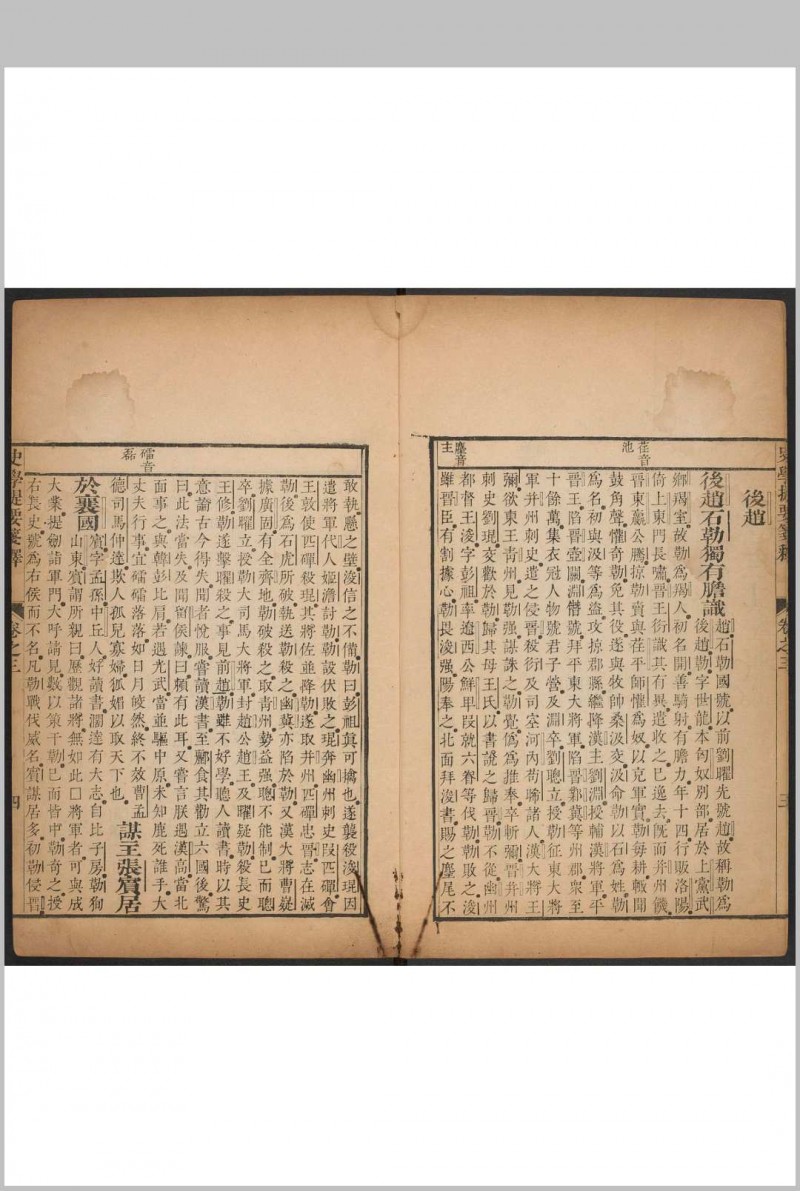 後趙
後趙石勒獨有膽識趙石勒國號以前劉曜光號趙故稱勒爲
後趙勒字世龍本匈奴別部居於上黨武
鄉羯室故勒爲羯人初名開善騎射有膽力年十四行販洛陽
倚上東門長嘯晉王衍識其有異遣收之巳逸去旣而并州饑
晉東嬴公騰掠勒賣與茌平師懽爲奴以充軍實勒每耕輒聞
鼓角聲懽奇勒免其役遂與牧帥桑汲交汲命勒以石爲姓勒
爲名初與汲等爲盜攻掠郡縣繼降漢主劉淵授輔漢將軍平
晉王陷晉壺關淵僭號拜平東大將軍陷晉鄴冀等州郡衆至
十餘萬集衣冠人物號君子營及淵卒劉聰立授勒征東大將
軍并州刺史遣之侵晉殺衍及司空河內苟晞諸人漢大將王
彌欲東王青州見勒强謀誅之勒覺僞爲推奉卒斬彌晉并州
刺史劉琨交歡於勒歸其母王氏以書說之歸晉勒不從幽州
都督王浚字彭祖率遼西公鮮卑段就六眷等伐勒勒敗之浚
雖晉臣有割據心勒畏浚强陽奉之北面拜浚書賜之麈尾不
茌音
池
麈音
主
敢執懸之壁浚信之不備勒曰彭祖眞可擒也遂襲殺浚琨因
遣將軍代人姬澹討勒勒設伏敗之琨奔幽州刺史段匹磾會
王敦使匹磾殺琨其將佐並降勒遂取并州匹磾忠晉志在滅
勒後爲石虎所破執送勒殺之幽冀亦陷於勒又漢大將曹嶷
據廣固有全齊地勒破殺之取青州勢益强聰不能制巳而聰
卒劉曜立授勒大司馬大將軍封趙公趙王及曜疑勒殺長史
王修勒遂擊曜殺之事見前趙勒雖不好學聽人讀書時以其
意論古今得失聞者悅服嘗讀漢書至酈食其勸立六國後驚
曰此法當失及聞留侯諫曰賴有此耳又嘗言朕遇漢高當北
面事之與韓彭比肩若遇光武當並驅中原未知鹿死誰手大
丈夫行事宜礌礌落落如日月皎然終不效曹孟
德司馬仲達欺人孤兒寡婦狐媚以取天下也謀主張賓居
於襄國賓字孟孫中丘人好讀書濶達有大志自比子房勒狥
山東賓謂所親曰歷觀諸將無如此口將軍者可與成
大業提劒詣軍門大呼請見數以策干勒巳而皆中勒奇之授
右長史號爲右侯而不名凡勒戰伐威名賓謀居多初勒侵晉
礌音
磊
卷之三
三
卷之三
四